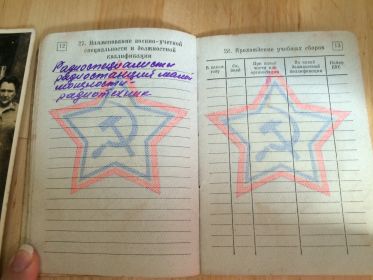 12
27. Наименование военно-учетной
специальности и должностной
квалификации
Радиоспециалисты
радиостанций малой
мощности
радиотехник
28. Прохождение учебных сборов
13
В каком
году
При какой
части или
организации
По какой
должностной
квалификации
Номер
ВУС